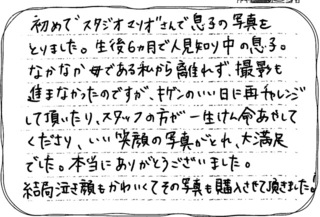 初めて"スタジオマリオ"さんで息子の写真を
とりました。生後6ヶ月で人見知り中の息子。
なかなか母である私から離れず、撮影も
進まなかったのですが、キゲンのいい日に再チャレンジ
して頂いたり、スタッフの方が一生けん命あやして
くださり、いい笑顔の写真がとれ、大満足
でした。本当にありがとうございました。
結局泣き顔もかわいくてその写真も購入させて頂きました!